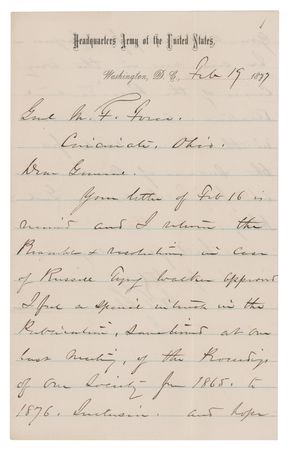 1
Headquarters Army of the United States,
Washington, D.C., Feb 19 1877
Genl M. F. Force.
Cincinnati, Ohio.
Dear General.
Your letter of Feb 16 is
received and I return the
Preamble & resolutions in case
of approved
I feel a special interest in the
Publication, sanctioned at our
last meeting, of the Proceedings
of our Society from 1865. to
1876. Inclusive. and hope